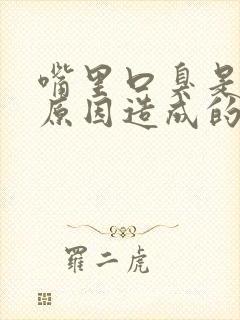 嘴里口臭是
原因造成的
羅二虎